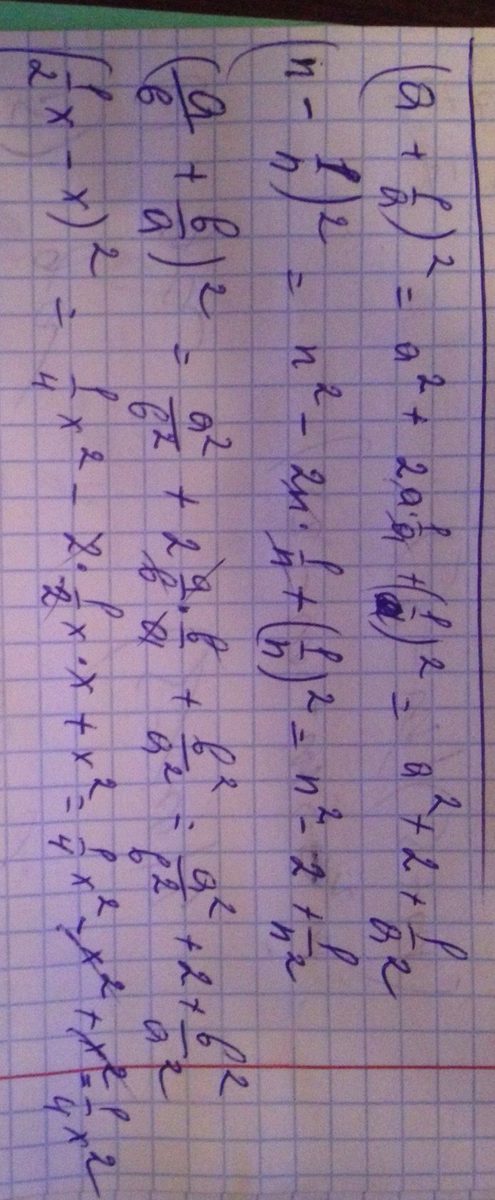 (a + 1/a)² = a² + 2a·1/a + (1/a)² = a² + 2 + 1/a²
(n - 1/n)² = n² - 2n·1/n + (1/n)² = n² - 2 + 1/n²
(a/в + в/a)² = a²/в² + 2 a/в · в/a + в²/a² = a²/в² + 2 + в²/a²
(1/2 x - x)² = 1/4 x² - 2·1/2 x·x + x² = 1/4 x² - x² + x² = 1/4 x²